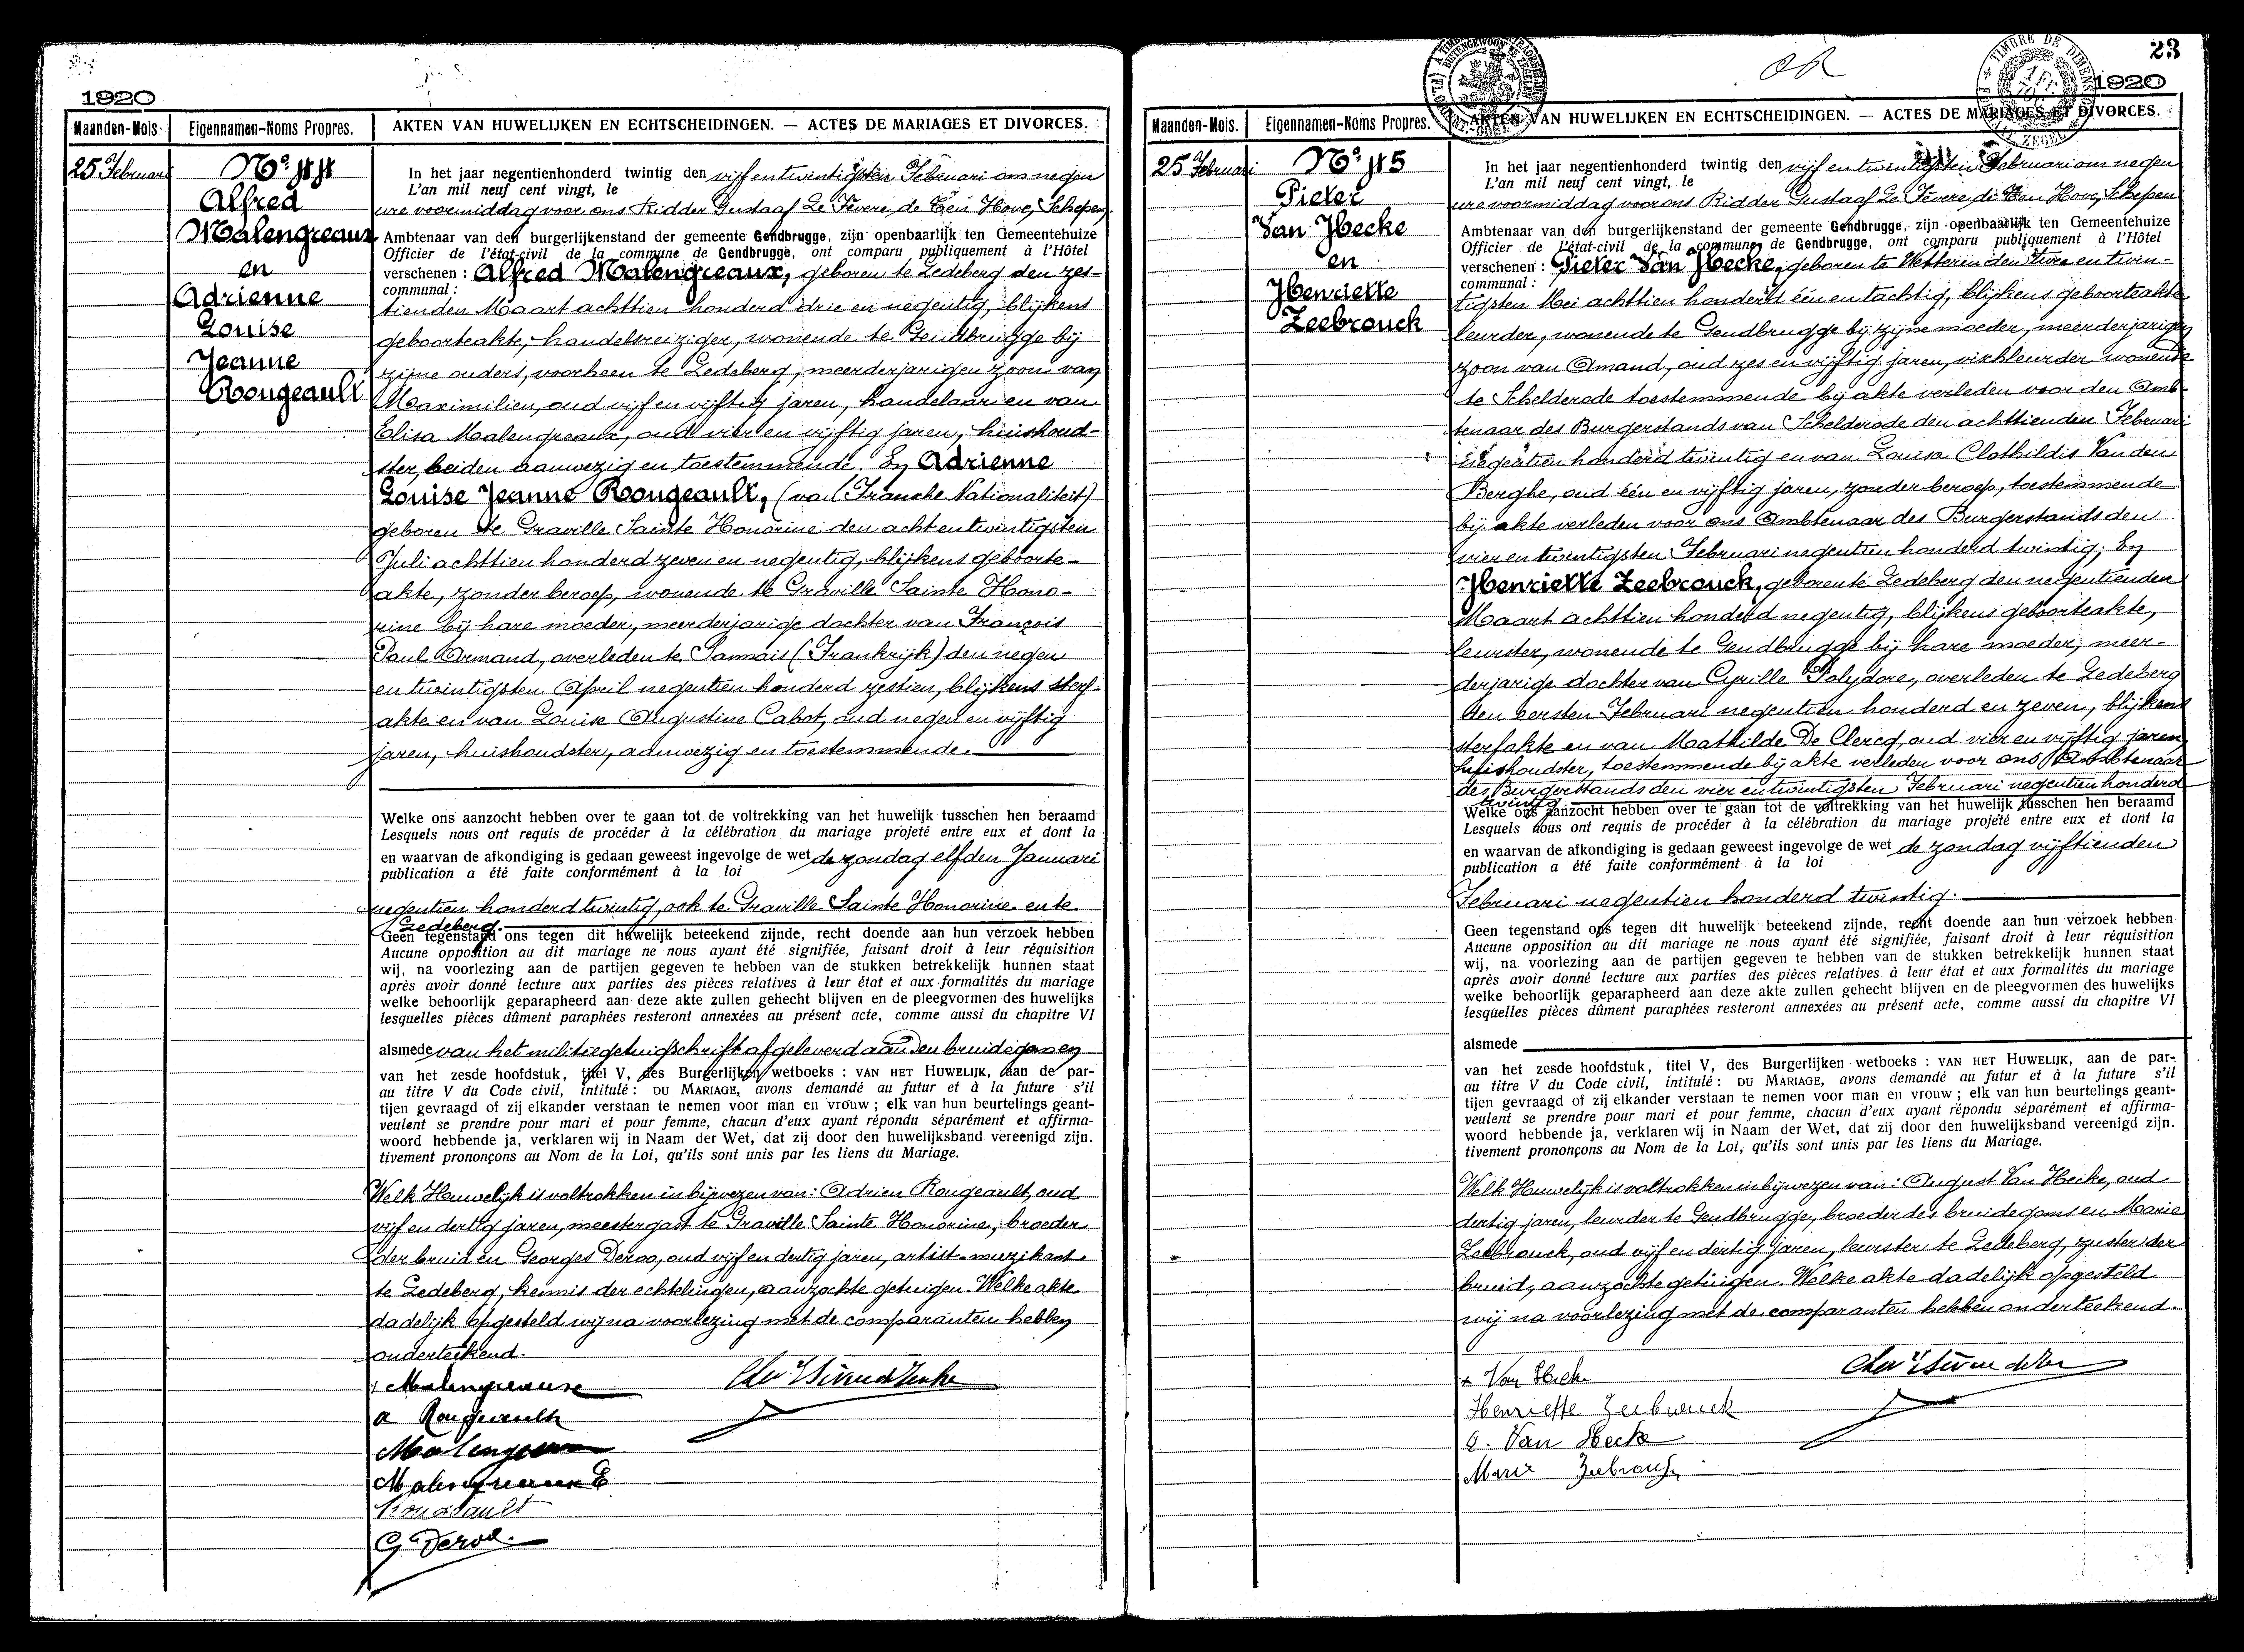 1920
Maanden-Mois. Eigennamen-Noms Propres. AKTEN VAN HUWELIJKEN EN ECHTSCHEIDINGEN. — ACTES DE MARIAGES ET DIVORCES.
25 Februari
No 44
Alfred
Malengreaux
en
Adrienne
Louise
Jeanne
Rougeault
In het jaar negentienhonderd twintig den vijf en twintigsten Februari om negen
L'an mil neuf cent vingt, le
ure voormiddag voor ons Ridder Gustaaf Le Fevere de Ten Hove, Schepen
Ambtenaar van den burgerlijkenstand der gemeente Gendbrugge, zijn openbaarlijk ten Gemeentehuize
Officier de l'état-civil de la commune de Gendbrugge, ont comparu publiquement à l'Hôtel
verschenen : Alfred Malengreaux, geboren te Ledeberg den zes-
communal :
tienden Maart achttien honderd drie en negentig, blijkens
geboorteakte, handelsreiziger, wonende te Gendbrugge bij
zijne ouders, voorheen te Ledeberg, meerderjarigen zoon van
Maximilien, oud vijf en vijftig jaren, handelaar en van
Elisa Malengreaux, oud vier en vijftig jaren, huishoud-
ster, beiden aanwezig en toestemmende. En Adrienne
Louise Jeanne Rougeault, (van Fransche Nationaliteit)
geboren te Graville Sainte Honorine den acht en twintigsten
Juli achttien honderd zeven en negentig, blijkens geboorte-
akte, zonder beroep, wonende te Graville Sainte Hono-
rine bij hare moeder, meerderjarige dochter van François
Paul Armand, overleden te Sannais (Frankrijk) den negen
en twintigsten April negentien honderd zestien, blijkens sterf-
akte en van Louise Augustine Cabot, oud negen en vijftig
jaren, huishoudster, aanwezig en toestemmende.
Welke ons aanzocht hebben over te gaan tot de voltrekking van het huwelijk tusschen hen beraamd
Lesquels nous ont requis de procéder à la célébration du mariage projeté entre eux et dont la
en waarvan de afkondiging is gedaan geweest ingevolge de wet de zondag elfden Januari
publication a été faite conformément à la loi
negentien honderd twintig, ook te Graville Sainte Honorine en te
Ledeberg.
Geen tegenstand ons tegen dit huwelijk beteekend zijnde, recht doende aan hun verzoek hebben
Aucune opposition au dit mariage ne nous ayant été signifiée, faisant droit à leur réquisition
wij, na voorlezing aan de partijen gegeven te hebben van de stukken betrekkelijk hunnen staat
après avoir donné lecture aux parties des pièces relatives à leur état et aux formalités du mariage
welke behoorlijk geparapheerd aan deze akte zullen gehecht blijven en de pleegvormen des huwelijks
lesquelles pièces dûment paraphées resteront annexées au présent acte, comme aussi du chapitre VI
alsmede van het militiegetuigschrift afgeleverd aan den bruidegom en
van het zesde hoofdstuk, titel V, des Burgerlijken wetboeks : VAN HET HUWELIJK, aan de par-
au titre V du Code civil, intitulé : DU MARIAGE, avons demandé au futur et à la future s'il
tijen gevraagd of zij elkander verstaan te nemen voor man en vrouw ; elk van hun beurtelings geant-
veulent se prendre pour mari et pour femme, chacun d'eux ayant répondu séparément et affirma-
woord hebbende ja, verklaren wij in Naam der Wet, dat zij door den huwelijksband vereenigd zijn.
tivement prononçons au Nom de la Loi, qu'ils sont unis par les liens du Mariage.
Welk Huwelijk is voltrokken in bijwezen van : Adrien Rougeault, oud
vijf en dertig jaren, meestergast te Graville Sainte Honorine, broeder
der bruid en Georges Deroo, oud vijf en dertig jaren, artist-muzikant
te Ledeberg, kennis der echtelingen, aanzochte getuigen. Welke akte
dadelijk opgesteld wij na voorlezing met de comparanten hebben
onderteekend.
Malengreaux
a Rougeault
Malengreaux
Malengreaux E
Rougeault
G Deroo.
OR
23
1920
Maanden-Mois. Eigennamen-Noms Propres. AKTEN VAN HUWELIJKEN EN ECHTSCHEIDINGEN. — ACTES DE MARIAGES ET DIVORCES.
25 Februari
No 45
Pieter
Van Hecke
en
Henriette
Zeebrouck
In het jaar negentienhonderd twintig den vijf en twintigsten Februari om negen
L'an mil neuf cent vingt, le
ure voormiddag voor ons Ridder Gustaaf Le Fevere de Ten Hove, Schepen
Ambtenaar van den burgerlijkenstand der gemeente Gendbrugge, zijn openbaarlijk ten Gemeentehuize
Officier de l'état-civil de la commune de Gendbrugge, ont comparu publiquement à l'Hôtel
verschenen : Pieter Van Hecke, geboren te Wetteren den twee en twin-
communal :
tigsten Mei achttien honderd één en tachtig, blijkens geboorteakte
leurder, wonende te Gendbrugge bij zijne moeder, meerderjarigen
zoon van Amand, oud zes en vijftig jaren, vischleurder wonende
te Schelderode toestemmende bij akte verleden voor den Amb-
tenaar des Burgerstands van Schelderode den achttienden Februari
negentien honderd twintig en van Louisa Clothildis Van den
Berghe, oud één en vijftig jaren, zonder beroep, toestemmende
bij akte verleden voor ons Ambtenaar des Burgerstands den
vier en twintigsten Februari negentien honderd twintig; En
Henriette Zeebrouck, geboren te Ledeberg den negentienden
Maart achttien honderd negentig, blijkens geboorteakte,
leurster, wonende te Gendbrugge bij hare moeder, meer-
derjarige dochter van Cyrille Polydore, overleden te Ledeberg
den eersten Februari negentien honderd en zeven, blijkens
sterfakte en van Mathilde De Clercq, oud vier en vijftig jaren,
huishoudster, toestemmende bij akte verleden voor ons Ambtenaar
des Burgerstands den vier en twintigsten Februari negentien honderd
twintig
Welke ons aanzocht hebben over te gaan tot de voltrekking van het huwelijk tusschen hen beraamd
Lesquels nous ont requis de procéder à la célébration du mariage projeté entre eux et dont la
en waarvan de afkondiging is gedaan geweest ingevolge de wet de zondag vijftienden
publication a été faite conformément à la loi
Februari negentien honderd twintig.
Geen tegenstand ons tegen dit huwelijk beteekend zijnde, recht doende aan hun verzoek hebben
Aucune opposition au dit mariage ne nous ayant été signifiée, faisant droit à leur réquisition
wij, na voorlezing aan de partijen gegeven te hebben van de stukken betrekkelijk hunnen staat
après avoir donné lecture aux parties des pièces relatives à leur état et aux formalités du mariage
welke behoorlijk geparapheerd aan deze akte zullen gehecht blijven en de pleegvormen des huwelijks
lesquelles pièces dûment paraphées resteront annexées au présent acte, comme aussi du chapitre VI
alsmede
van het zesde hoofdstuk, titel V, des Burgerlijken wetboeks : VAN HET HUWELIJK, aan de par-
au titre V du Code civil, intitulé : DU MARIAGE, avons demandé au futur et à la future s'il
tijen gevraagd of zij elkander verstaan te nemen voor man en vrouw ; elk van hun beurtelings geant-
veulent se prendre pour mari et pour femme, chacun d'eux ayant répondu séparément et affirma-
woord hebbende ja, verklaren wij in Naam der Wet, dat zij door den huwelijksband vereenigd zijn.
tivement prononçons au Nom de la Loi, qu'ils sont unis par les liens du Mariage.
Welk Huwelijk is voltrokken in bijwezen van : August Van Hecke, oud
dertig jaren, leurder te Gendbrugge, broeder des bruidegoms en Marie
Zeebrouck, oud vijf en dertig jaren, leurster te Ledeberg, zuster der
bruid, aanzochte getuigen. Welke akte dadelijk opgesteld
wij na voorlezing met de comparanten hebben onderteekend.
Van Hecke
Henriette Zeebrouck
Van Hecke
Marie Zeebrouck